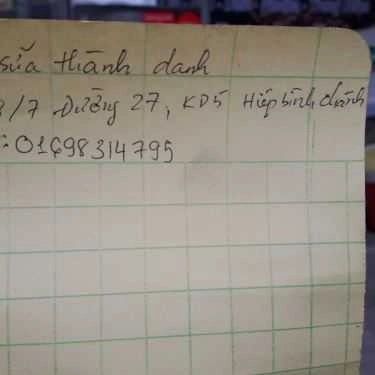 sữa thành danh
/7 Đường 27, KD5 Hiệp bình chánh
: 01698314795